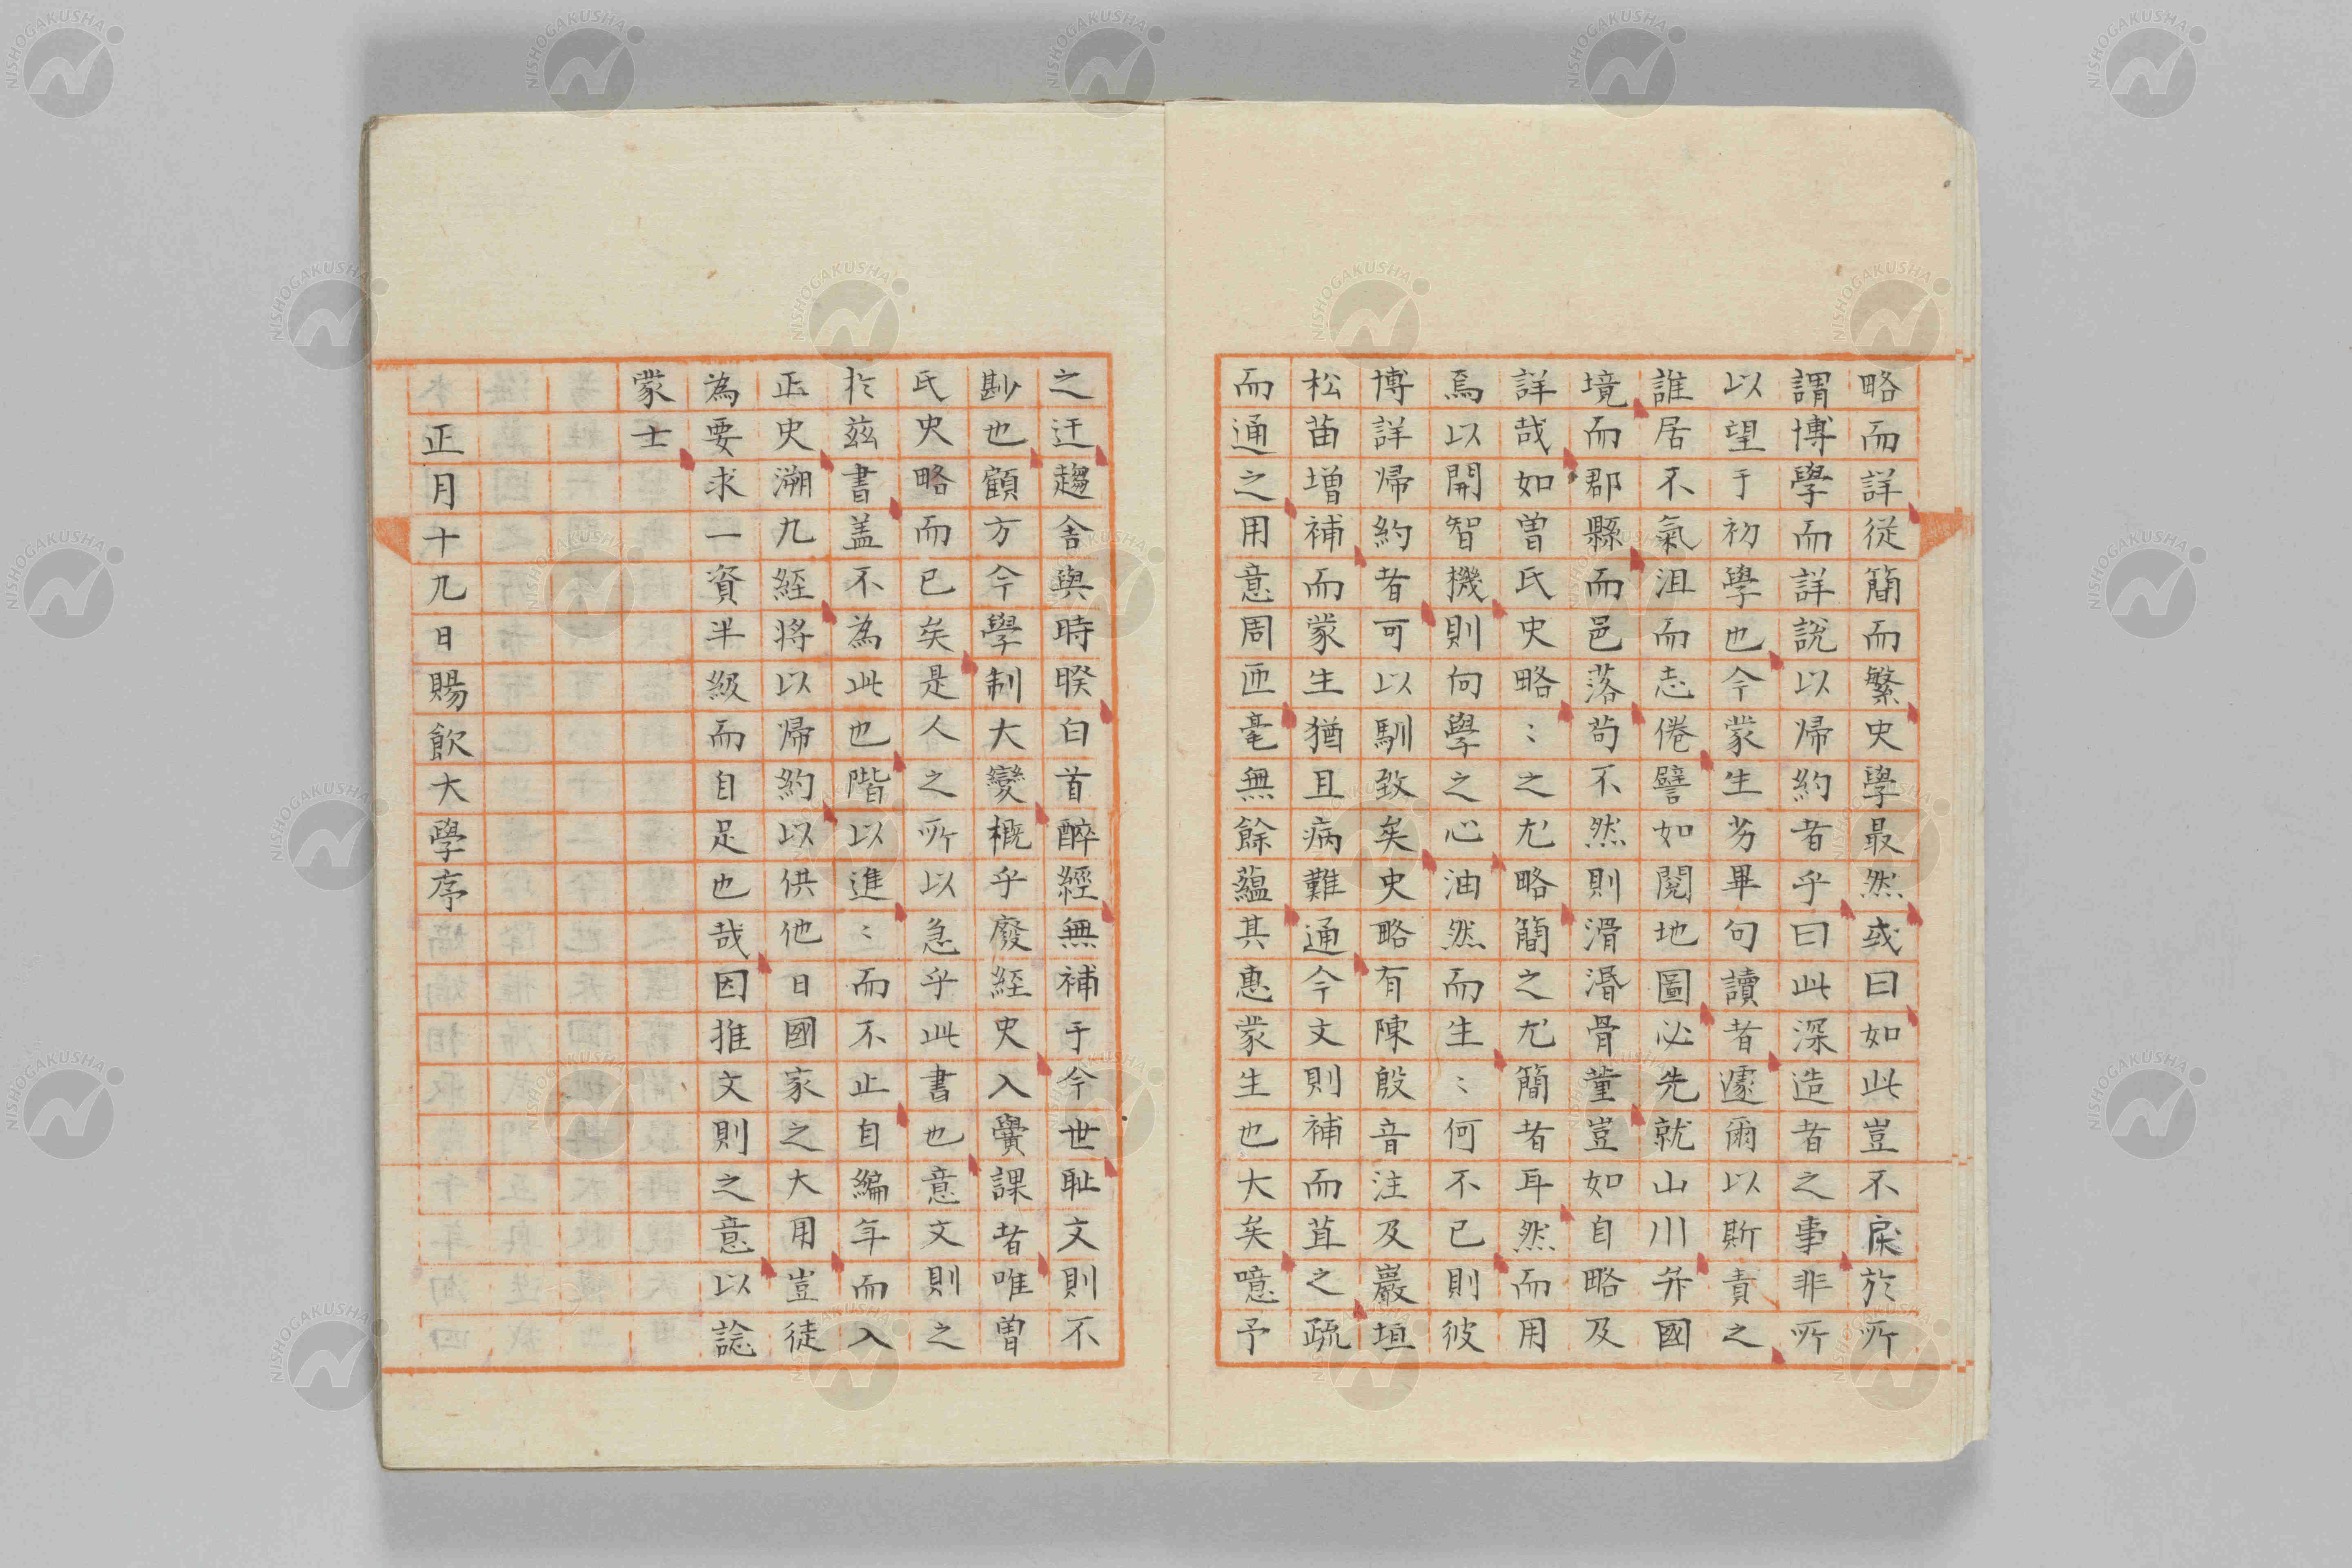 略而詳從簡而繁史學最然或曰如此豈不戾於所
謂博學而詳說以歸約者乎曰此深造者之事非所
以望于初學也今蒙生芴畢句讀者遽爾以斯責之
誰居不氣沮而志倦譬如閱地圖必先就山川并國
境而郡縣而邑落苟不然則滑湣骨董豈如自略及
詳哉如曽氏史略〻之尤略簡之尤簡者耳然而用
焉以開智機則向學之心油然而生〻何不已則彼
博詳帰約者可以馴致矣史略有陳殷音注及巖垣
松苗增補而蒙生猶且病難通今文則補而苴之疏
而通之用意周匝毫無餘蘊其惠蒙生也大矣噫予
之迂趨舍與時睽白首醉經無補于今世耻文則不
尠也顧方今學制大變概乎廢經史入黌課者唯曽
氏史略而已矣是人之所以急乎此書也意文則之
於茲書盖不為此也階以進〻而不止自編年而入
正史溯九經將以帰約以供他日國家之大用豈徒
為要求一資半級而自足也哉因推文則之意以諗
蒙士
正月十九日賜飲大學序
NISHOGAKUSHA